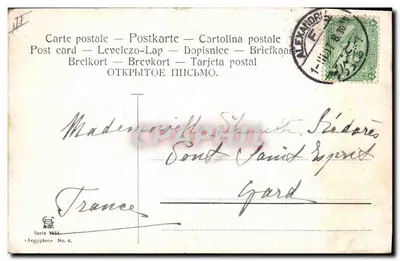 Carte postale – Postkarte – Cartolina postale
Post card – Levelezo-Lap – Dopisnice – Briefkaart
Brefkort – Brevkort – Tarjeta postal
ОТКРЫТОЕ ПИСЬМО.
ALEXANDRI
Mademoiselle
Pont Saint Esprit
Gard
France
Serie
«Aegypten» No. 4.